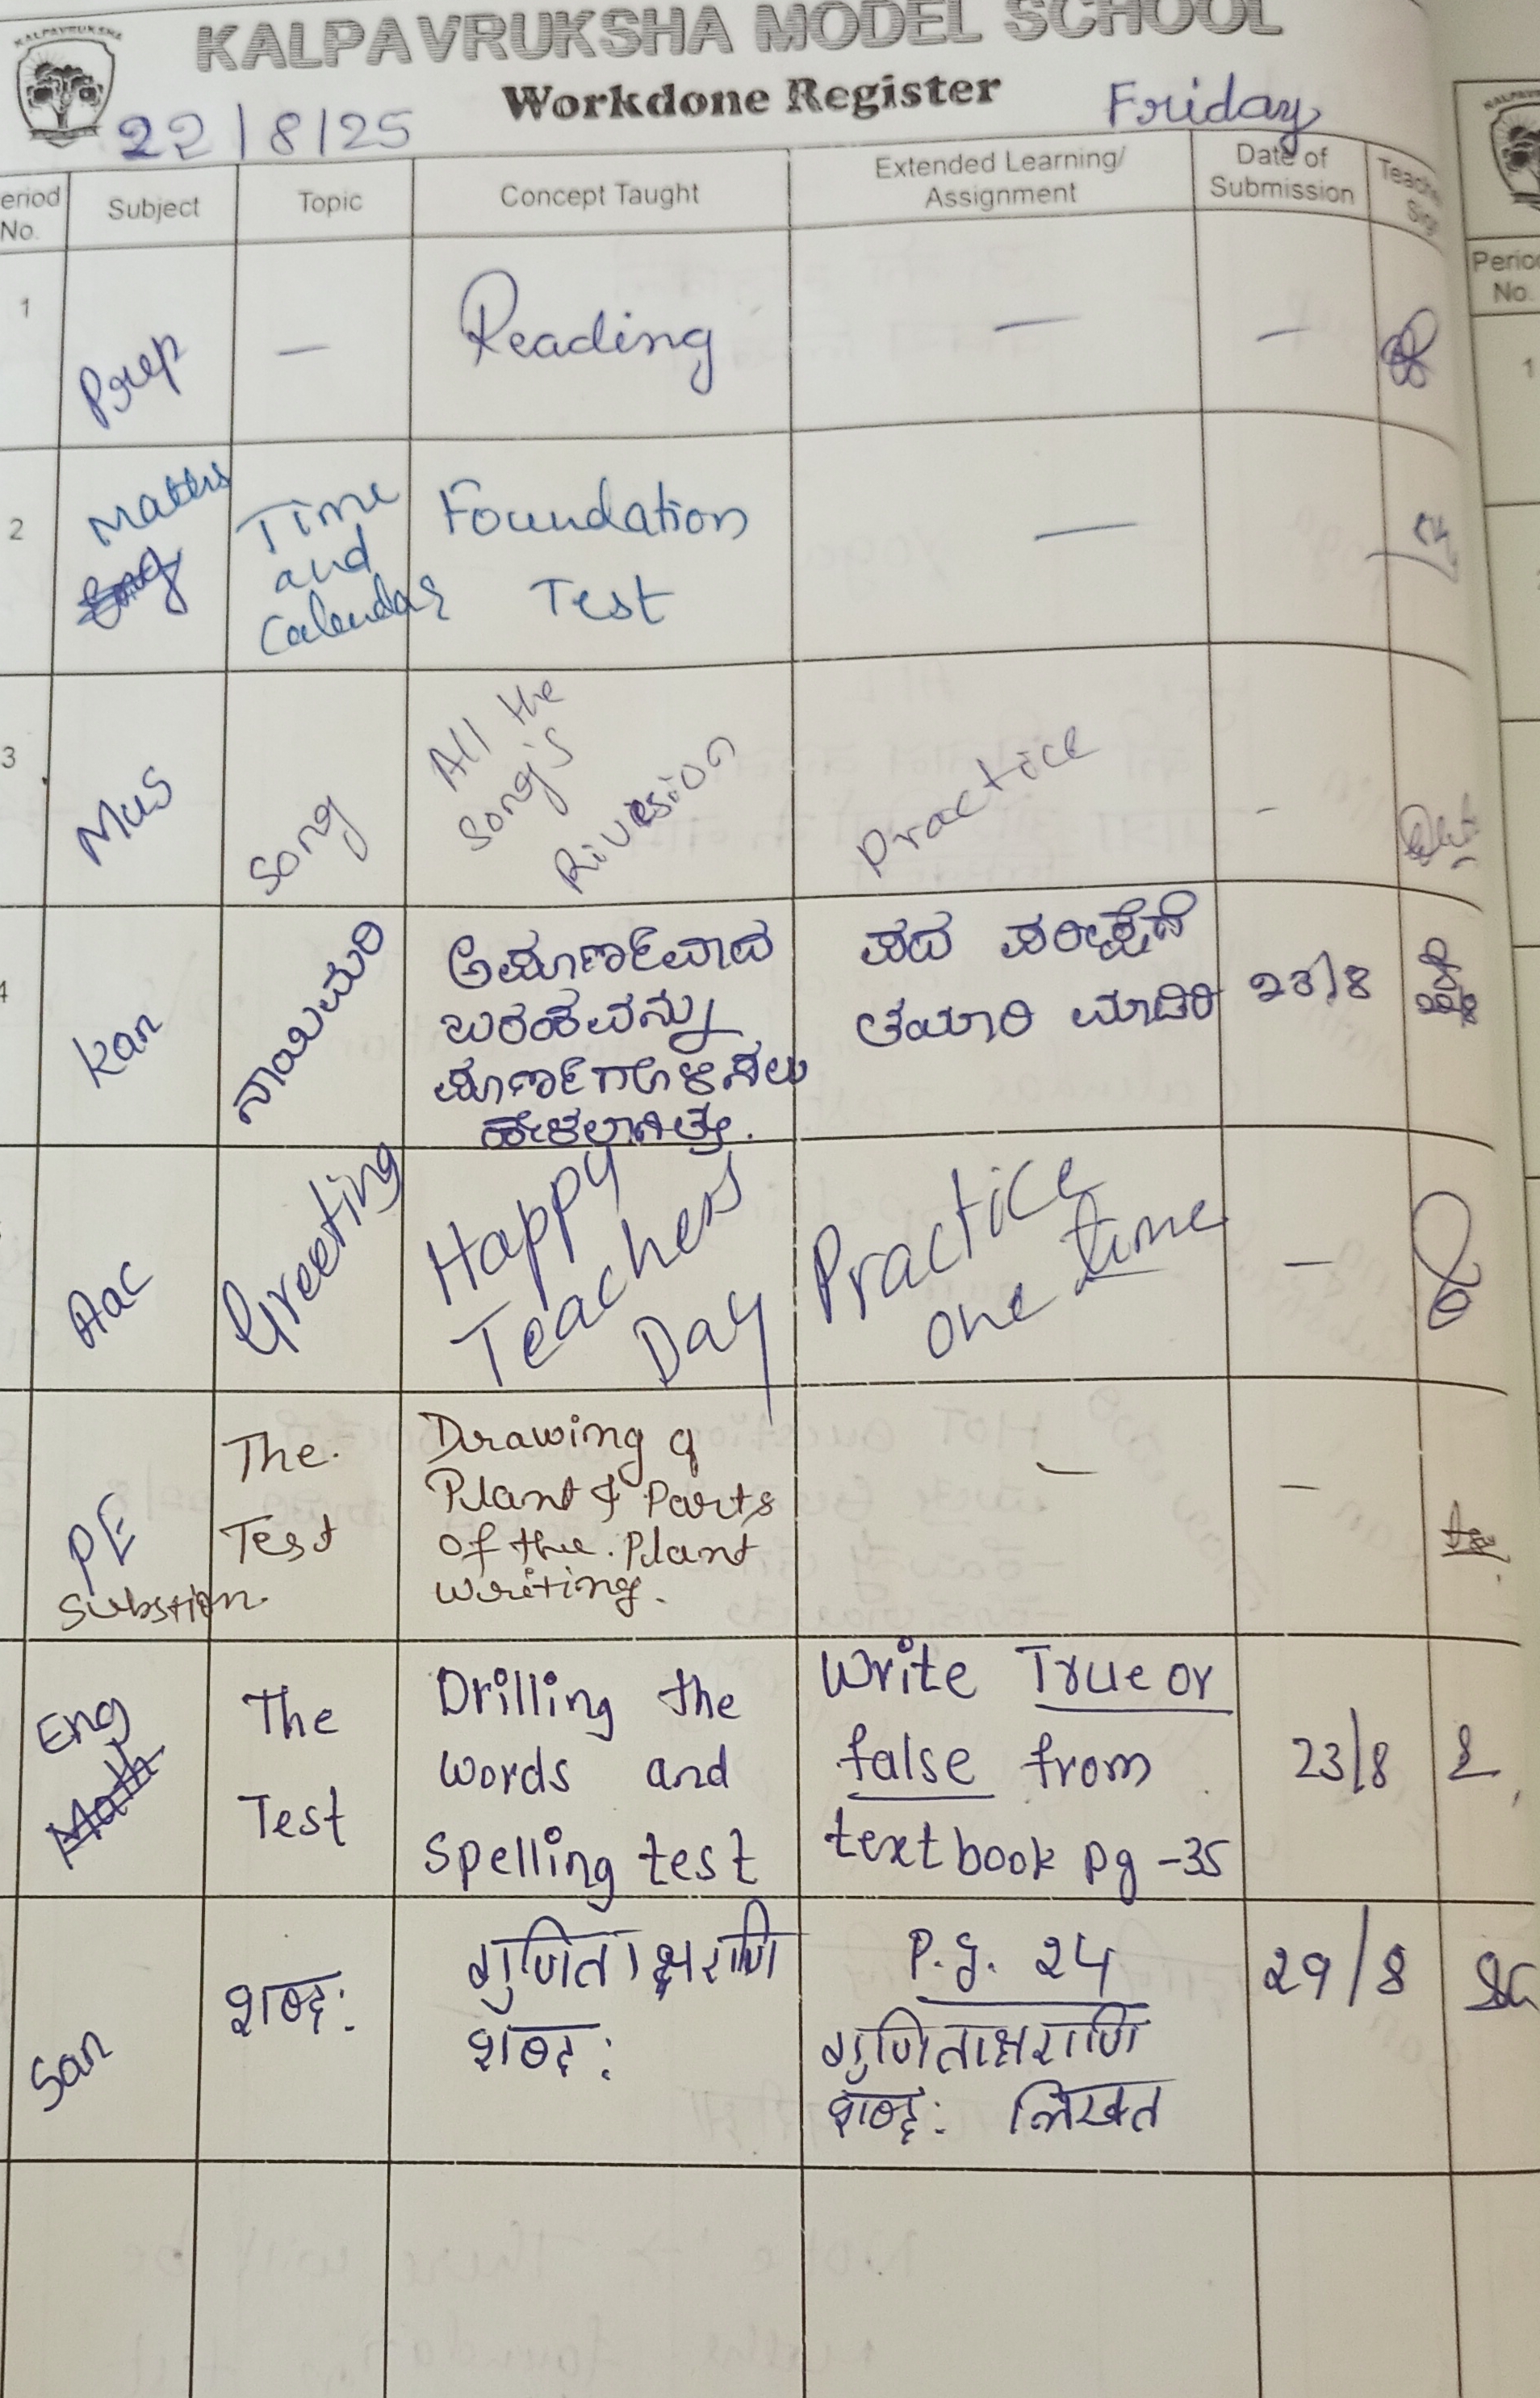 KALPAVRUKSHA
KALPAVRUKSHA MODEL SCHOOL
Workdone Register
22/8/25
Friday
eriod No.
Subject
Topic
Concept Taught
Extended Learning/
Assignment
Date of
Submission
1
Prep
—
Reading
—
—
2
Maths
Eng
Time
and
Calendar
Foundation
Test
—
3
Mus
Song
All the
Song's
Rivesion
Practice
-
4
Kan
ನಾಯಿಮರಿ
ಅಪೂರ್ಣವಾದ
ಬರಹವನ್ನು
ಪೂರ್ಣಗೊಳಿಸಲು
ಹೇಳಲಾಗಿತ್ತು.
ಪದ ಪರೀಕ್ಷೆಗೆ
ತಯಾರಿ ಮಾಡಿರಿ
23/8
Aac
Greeting
Happy
Teachers
Day
Practice
one time
—
PE
Substion.
The.
Test
Drawing of
Plant & Parts
of the. Plant
writing.
—
—
Eng
Math
The
Test
Drilling the
words and
spelling test
Write True or
false from
textbook pg -35
23/8
San
शब्द:
गुणिताक्षराणि
शब्द:
P.g. २४
गुणिताक्षराणि
शब्द: लिखत
२९/8
Period
No.
1